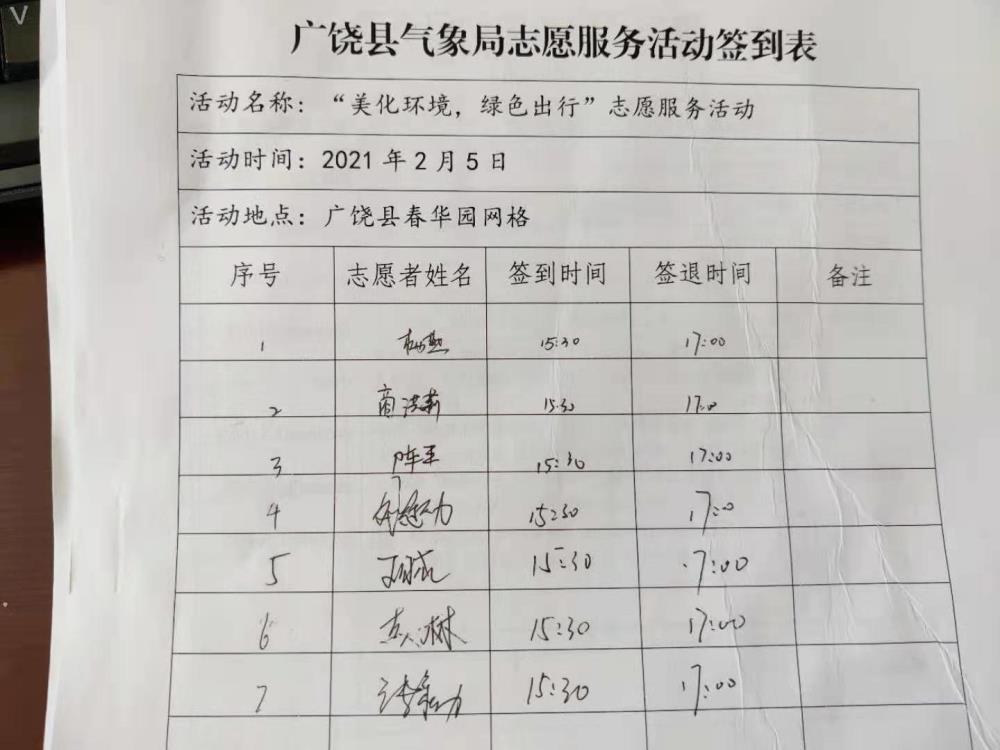 广饶县气象局志愿服务活动签到表
活动名称：“美化环境，绿色出行”志愿服务活动
活动时间：2021 年 2 月 5 日
活动地点：广饶县春华园网格
序号 志愿者姓名 签到时间 签退时间 备注
1 15:30 17:00
2 15:30 17:0
3 15:30 17:00
4 15:30 17:0
5 15:30 17:00
6 15:30 17:00
7 15:30 17:00